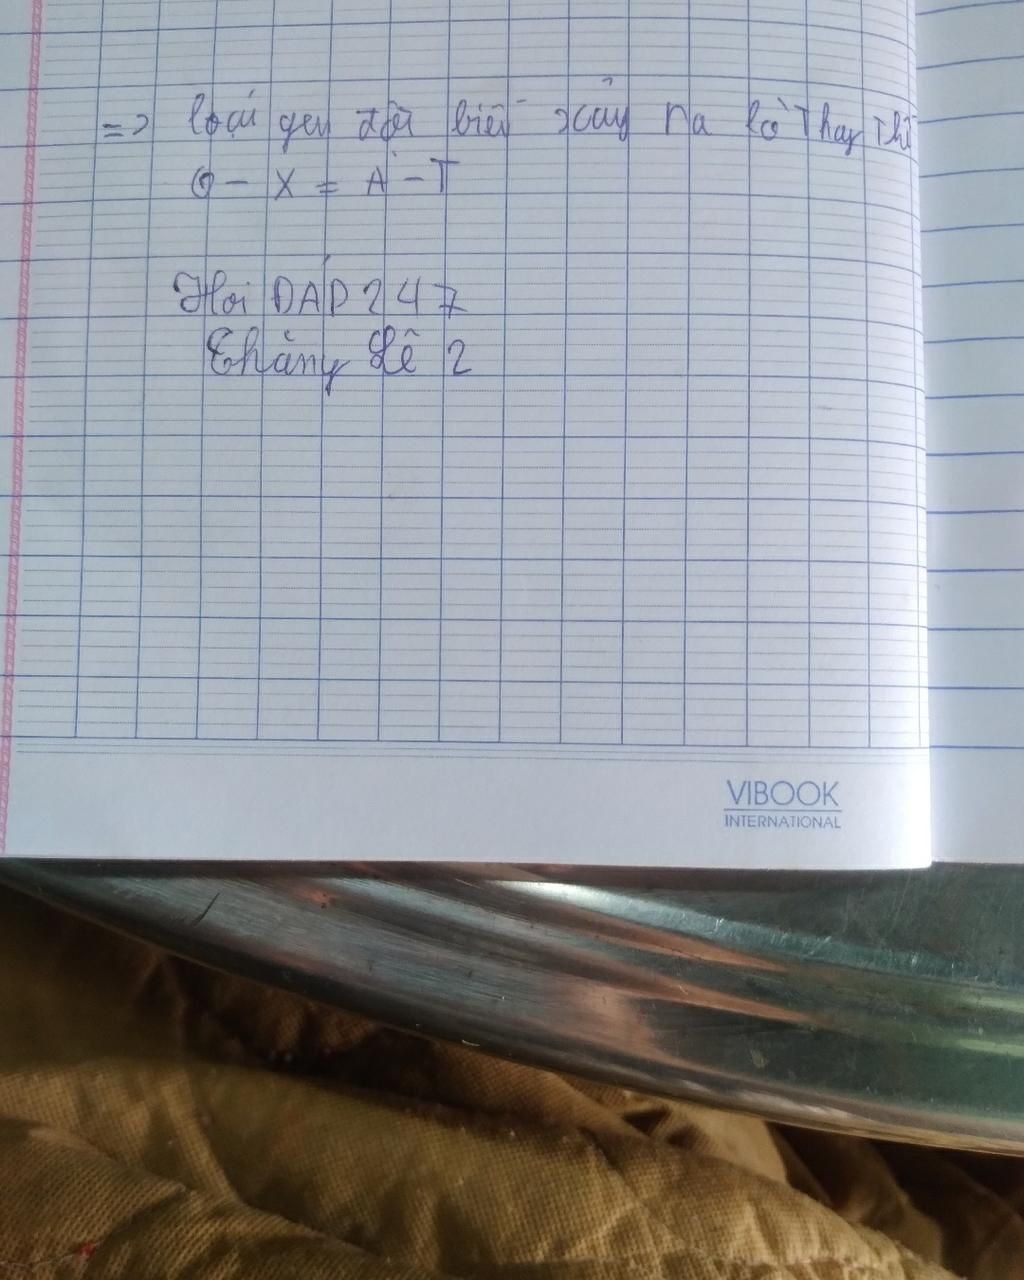 => loại gen đột biến xảy na là Thay Thế
G - X = A - T
Hoi ĐÁP 247
Thàng Lê 2
VIBOOK
INTERNATIONAL